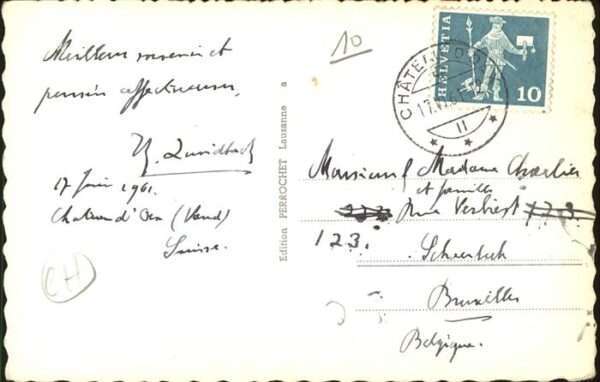 Meilleur souvenir et
pensées affectueuses,
17 Juin 1961.
Chateau d'Oex (Vaud)
Suisse.
CH
Edition PERROCHET Lausanne a
10
HELVETIA
10
CHÂTEAU-D'OEX
17.VI.
II
Monsieur & Madame Charlier
et famille
Rue Verbist 123
123.
Schaerbeek
Bruxelles
Belgique.